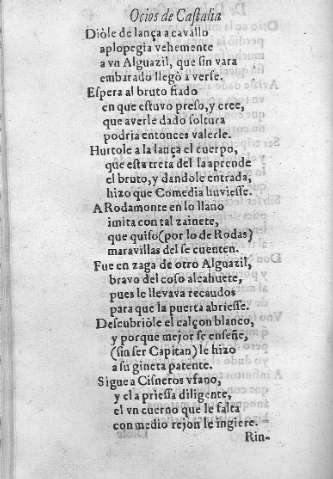 Ocios de Castalia
Diòle de lança a cavallo
aplopegia vehemente
a vn Alguazil, que sin vara
embarado llegò a verse.
Espera al bruto fiado
en que estuvo preso, y cree,
que averle dado soltura
podria entonces valerle.
Hurtole a la lança el cuerpo,
que esta treta del la aprende
el bruto, y dandole entrada,
hizo que Comedia huviesse.
A Rodamonte en lo llano
imita con tal zainete,
que quiso (por lo de Rodas)
maravillas del se cuenten.
Fue en zaga de otro Alguazil,
bravo del coso alcahuete,
pues le llevava recaudos
para que la puerta abriesse.
Descubriòle el calçon blanco,
y porque mejor se enseñe,
(sin ser Capitan) le hizo
a su gineta patente.
Sigue a Cisneros vfano,
y el a priessa diligente,
el vn cuerno que le falta
con medio rejon le ingiere.
Rin-